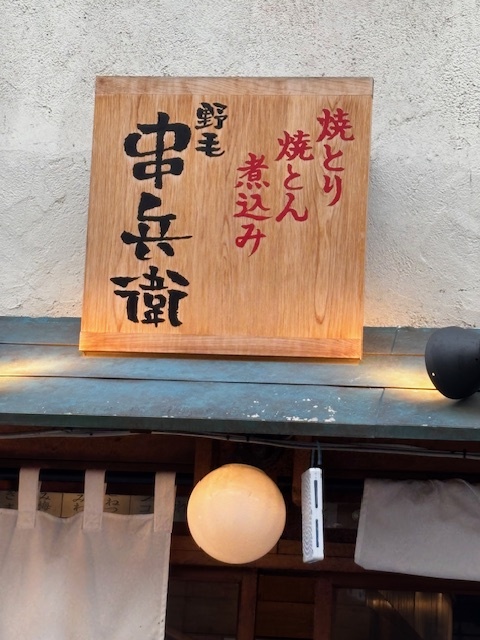 焼とり
焼とん
煮込み
野毛
串兵衛